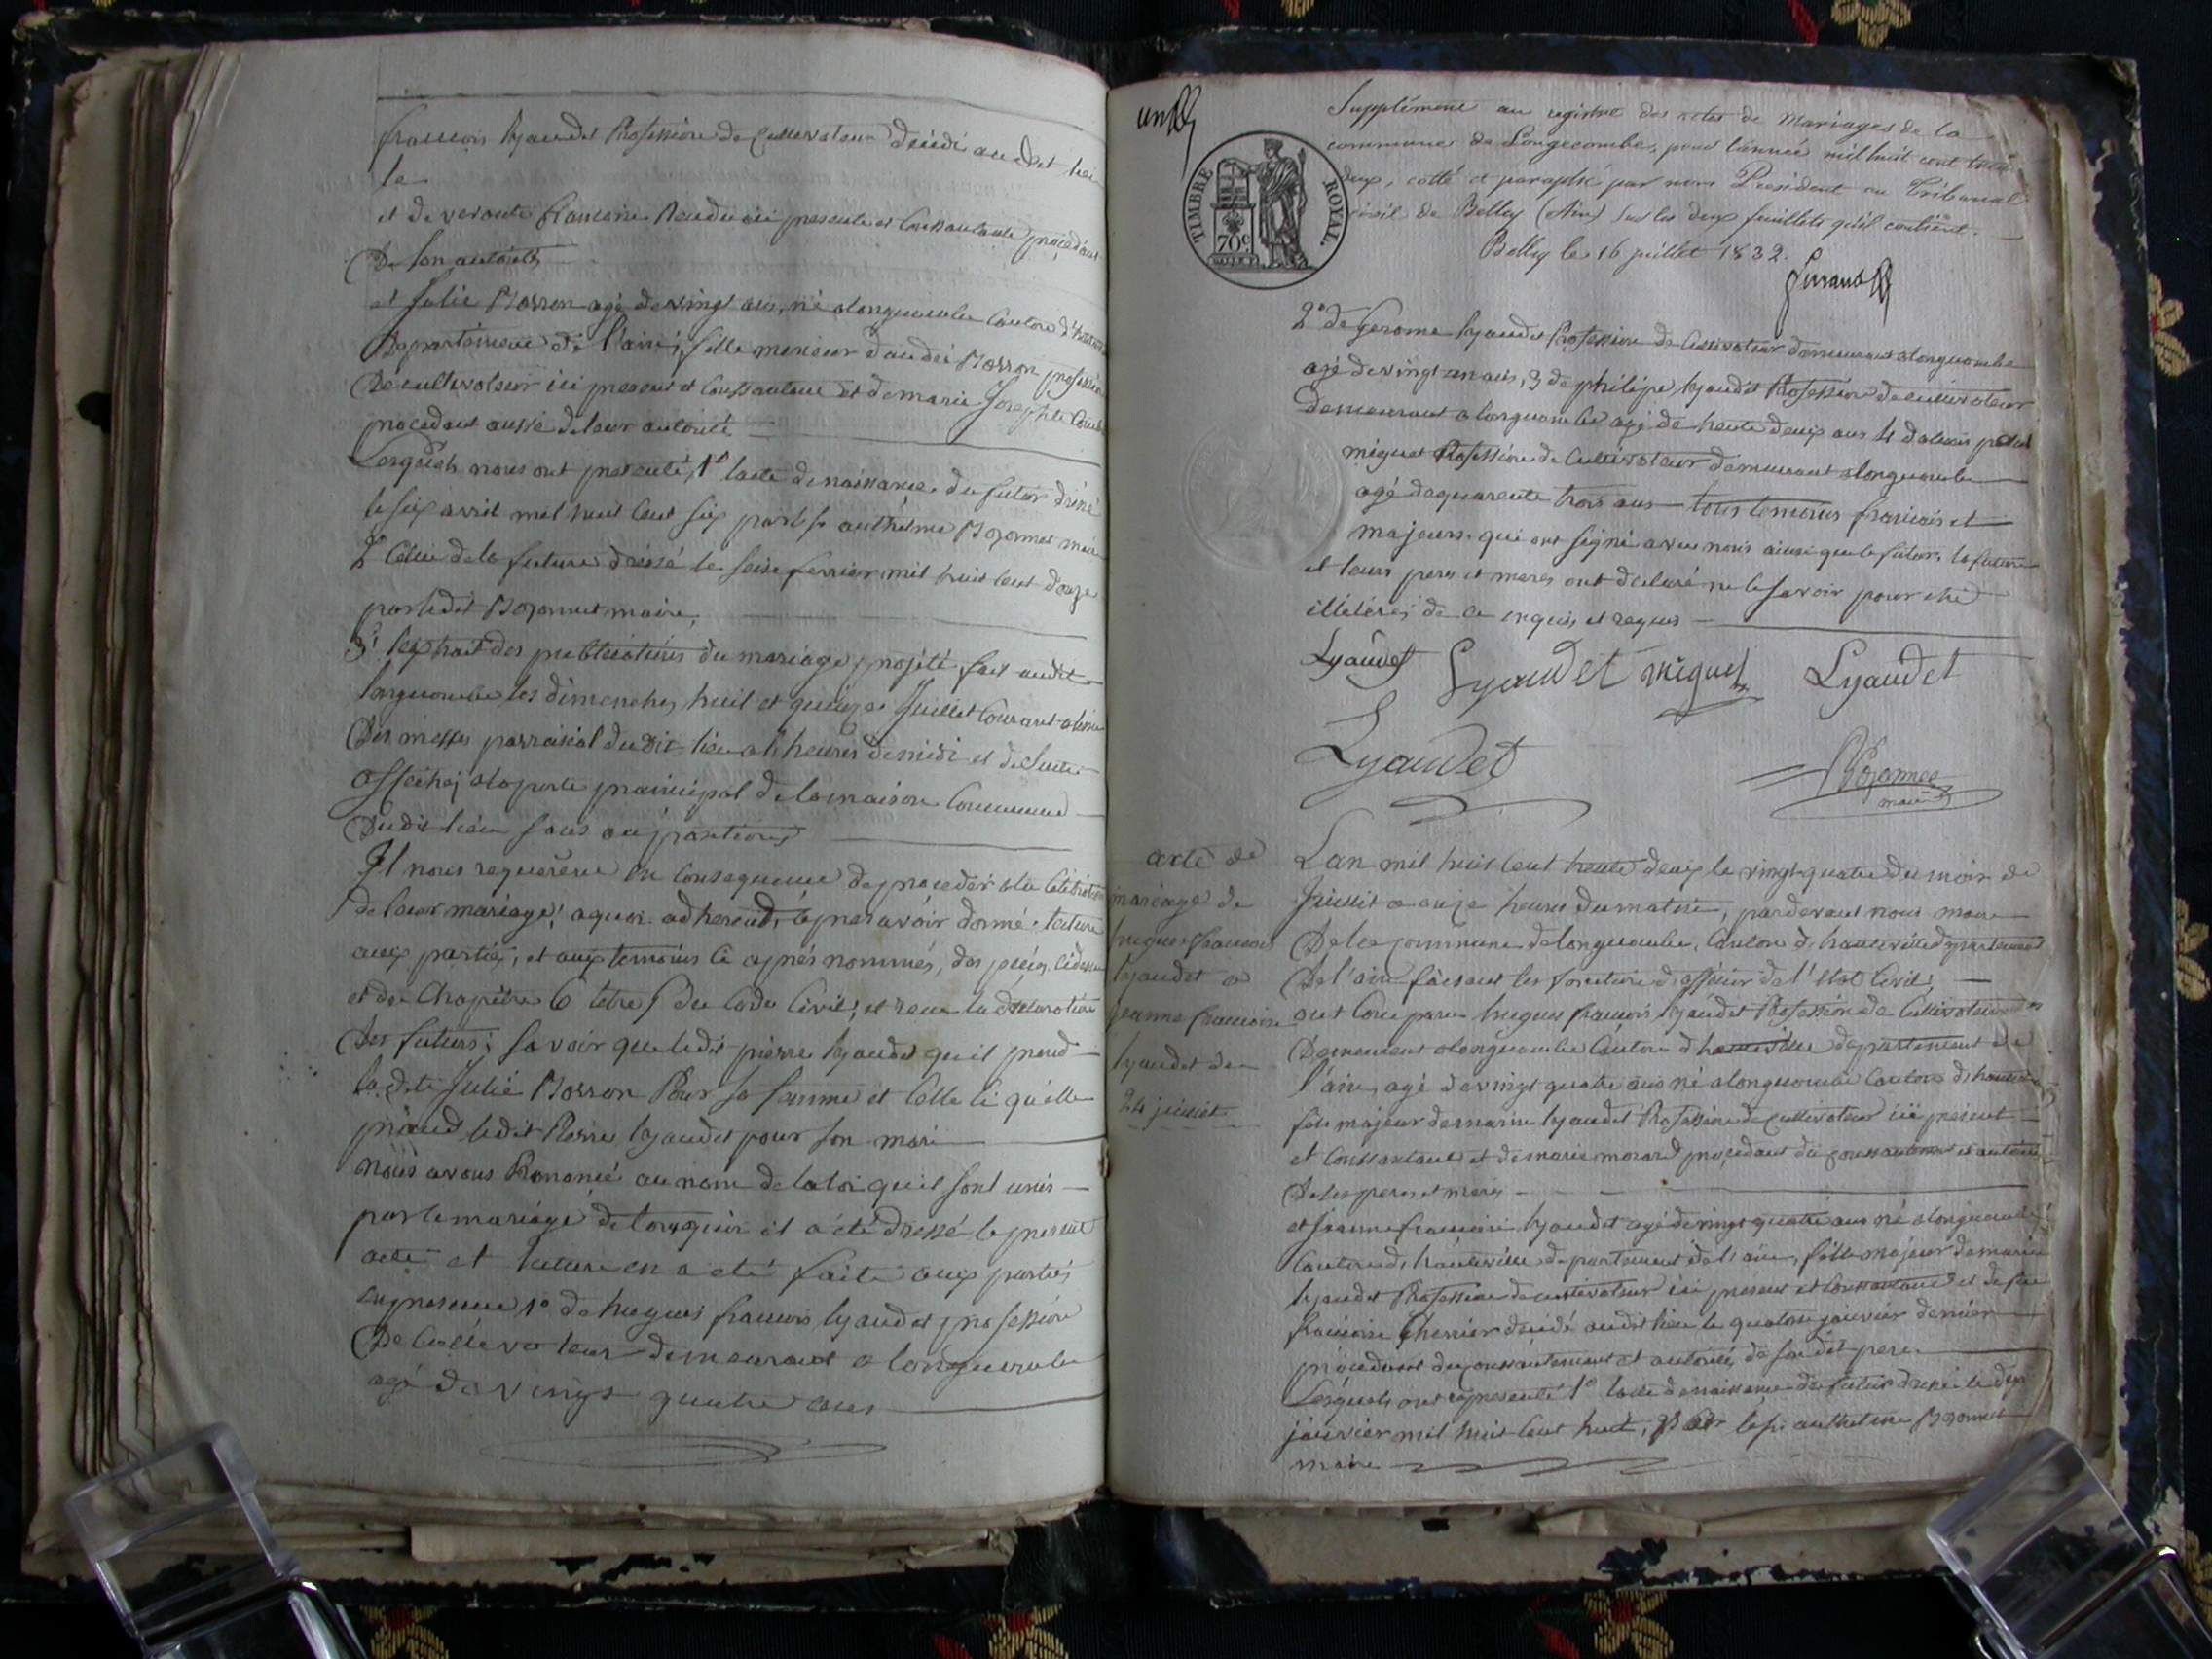 francois lyaudet Profession de Cultivateur décédé audit lieu
le
et de veronte francoise Rendu ici presente et Conssantante procedant
De son autorité
et Julie Rosson agé de vingt ans, né a longuecombe Canton d'hauteville
Departement de l'ain, fille mineur d'andré Rosson profession
De cultivateur ici present et Conssantant et de marie Josephte
procedant aussi de leur autorité
Lesquels nous ont presenté, 1° lacte de naissance du futur dréssé
le six avril mil huit cent six par le sr anthelme Bozonnet maire
2° Celui de la future dressé le seize fevrier mil huit cent douze
par ledit Bozonnet maire,
3° lextrait des publications du mariage projeté fait audit
longuecombe les dimenches huit et quinze Juillet Courant a lissue
Des messes parroisial dudit lieu a heures de midi et de suite
affiché a la porte principal de la maison Commune
Dudit lieu sans oupositions
Il nous requerere en Consequence de proceder a la Célébration
de leur mariage; a quoi adherend, apres avoir donné lecture
aux parties, et aux temoins ci après nommés, des pieces cidessus
et du Chapitre 6 titre 5 du Code Civil, et recu la déclaration
Des futurs; savoir que ledit pierre lyaudet qu'il prend
la dite Julie Rosson Pour sa famme et Celle ci qu'elle
prend ledit Pierre lyaudet pour son mari
nous avons Prononcé au nom de la loi qu'il sont unis
par le mariage de tous quoi il a été dressé le present
acte et lecture en a été faite aux parties
en presence 1° de hugues francois lyaudet profession
De Cultivateur demeurant a longuecombe
agé de vingt quatre ans
un
Supplément au registre des actes de Mariages de la
commune de Longecombe, pour l'année mil huit cent trente
deux, cotté et paraphé par nous Président au Tribunal
civil de Belley (Ain) sur les deux feuillets qu'il contient.
Belley le 16 juillet 1832.
TIMBRE ROYAL.
70c
2° de Jerome lyaudet Profession de Cultivateur demeurant a longuecombe
agé de vingt un ans, 3 de philipe lyaudet Profession de cultivateur
Demeurant a longuecombe agé de trente deux ans 4 d'alexis
miguet Profession de Cultivateur demeurant a longuecombe
agé de quarente trois ans tous temoins francais et
majeurs qui ont signé avec nous ainsi que le futur, la future
et leurs peres et meres ont declaré ne le savoir pour etre
illétérés de ce enquis et requis
Lyaudet Lyaudet miguet Lyaudet
Lyaudet Bozonnet
maire
acte de
mariage de
hugues francois
lyaudet a
jeanne francoise
lyaudet du
24 juillet
Lan mil huit cent trente deux le vingt quatre du mois de
Juillet a onze heures du matin, pardevant nous maire
De la commune de longuecombe, Canton d'hauteville departement
De l'ain faisant les fonctions d'officier de l'etat Civil,
ont Comparu hugues francois lyaudet Profession de Cultivateur
Demeurant a longuecombe Canton d'hauteville departement de
l'ain, agé de vingt quatre ans né a longuecombe Canton d'hauteville
fils majeur de marin lyaudet Profession de cultivateur ici present
et Conssantant et de marie morard procedant du conssantement et autorité
De ses peres et meres
et jeanne francoise lyaudet agé de vingt quatre ans né a longuecombe
Canton d'hauteville departement de l'ain, fille majeur de marin
lyaudet Profession de cultivateur ici present et Conssantant et de feu
francoise Cherrier décédé audit lieu le quatorze janvier dernier
procedant du conssantement et autorité de sondit pere.
Lesquels ont representé 1° lacte de naissance du futur dressé le dix
janvier mil huit cent huit, Par le sr. anthelme Bozonnet
maire